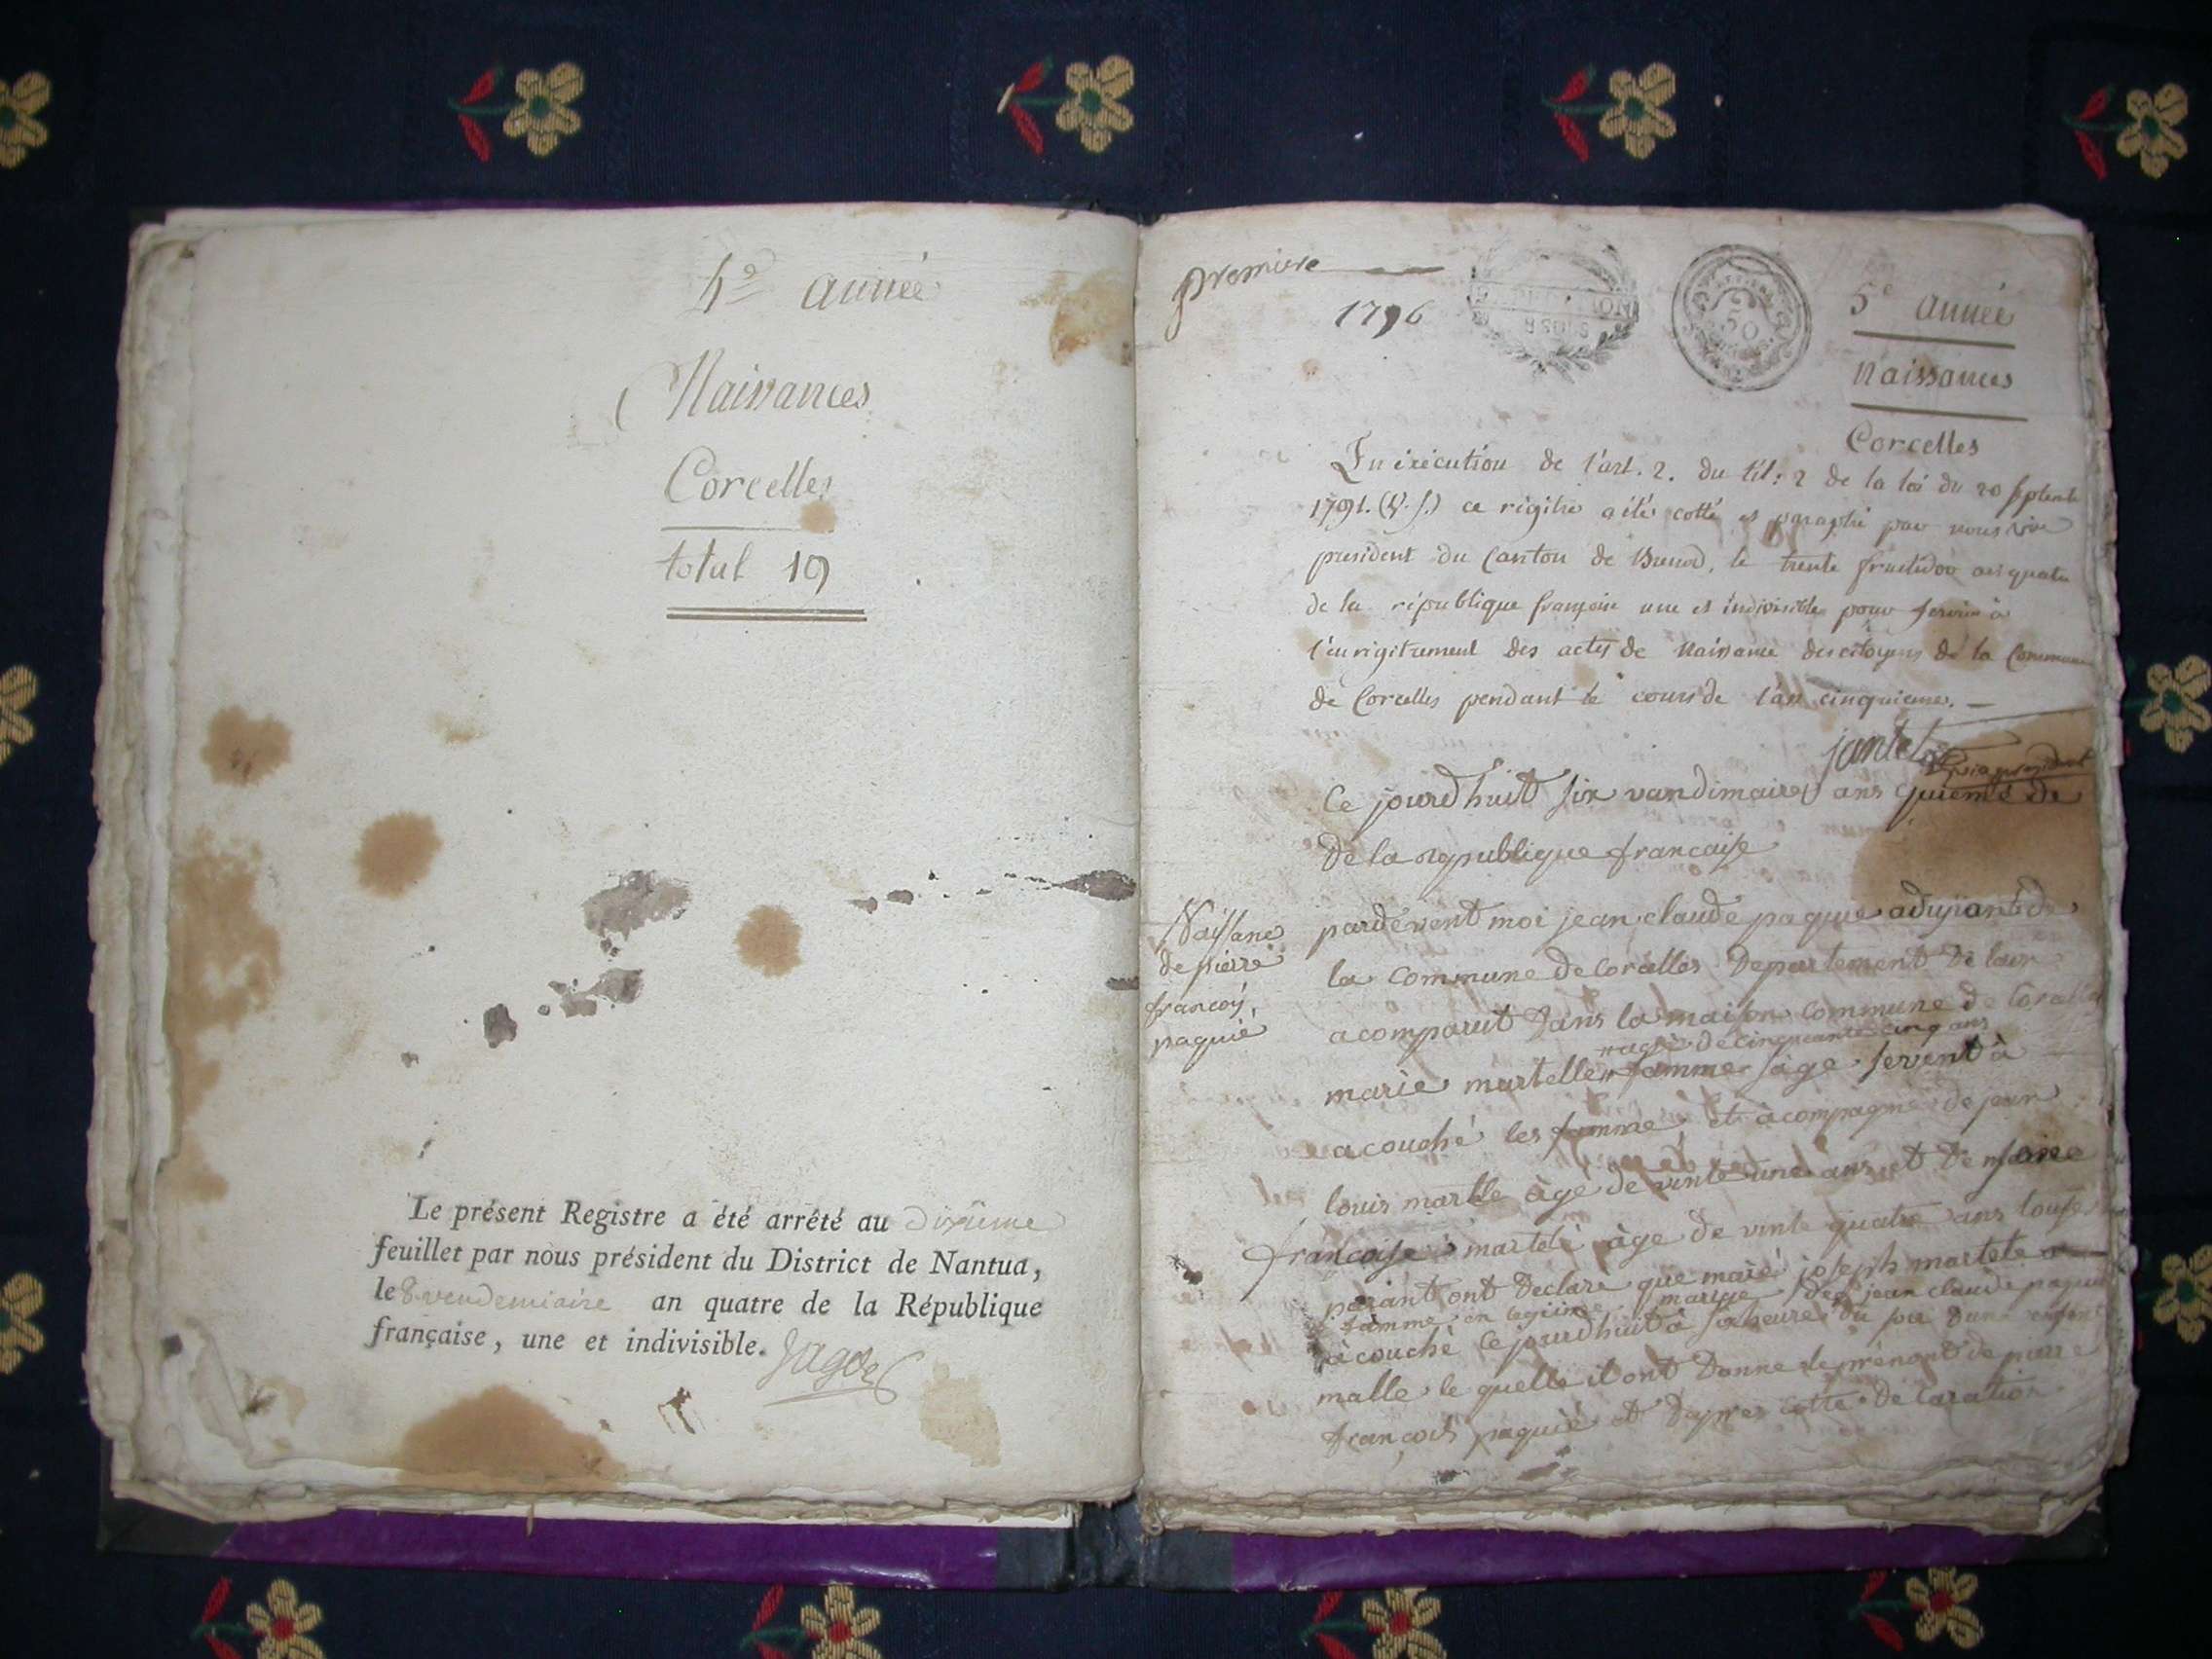 4e année
Naissances
Corcelles
total 19
Le présent Registre a été arrêté au dixième
feuillet par nous président du District de Nantua,
le 8 vendemiaire an quatre de la République
française, une et indivisible.
premiere
1796
5e année
Naissances
Corcelles
En éxécution de l'art. 2. du tit: 2 de la loi du 20 septembre
1791. (V.S.) ce régitre a été cotté et paraphé par nous vice
président du Canton de le trente fructidor an quatre
de la république françoise une et indivisible pour servir à
l'enrigitrement des actes de Naissance des citoyens de la Commune
de Corcelles pendant le cours de l'an cinquieme.
jantet
vice president
Ce jourdhuit six vandimaire ans quiemé de
de la republique francaise
Naissance
de pierre
françoy
paquié
pardevent moi jean claude paquie adujiant de
la commune de Corcelles Departement de lain
a comparut dans la maison commune de Corcelles
agé de cinquante cinq ans
marie martelle famme sage servent à
a couché les famme et acompagné de jean
louis martele àgé de vinte une ans et de marie
francoise martele àge de vinte quatre ans touse
parant ont declare que marie joseph martele a
famme en legitime mariage de jean claude paquié
àcouché ce jourdhuit à six heure du soir dun enfant
malle le quelle il ont donne le prenont de pierre
françois paquié et dapres cette declaration